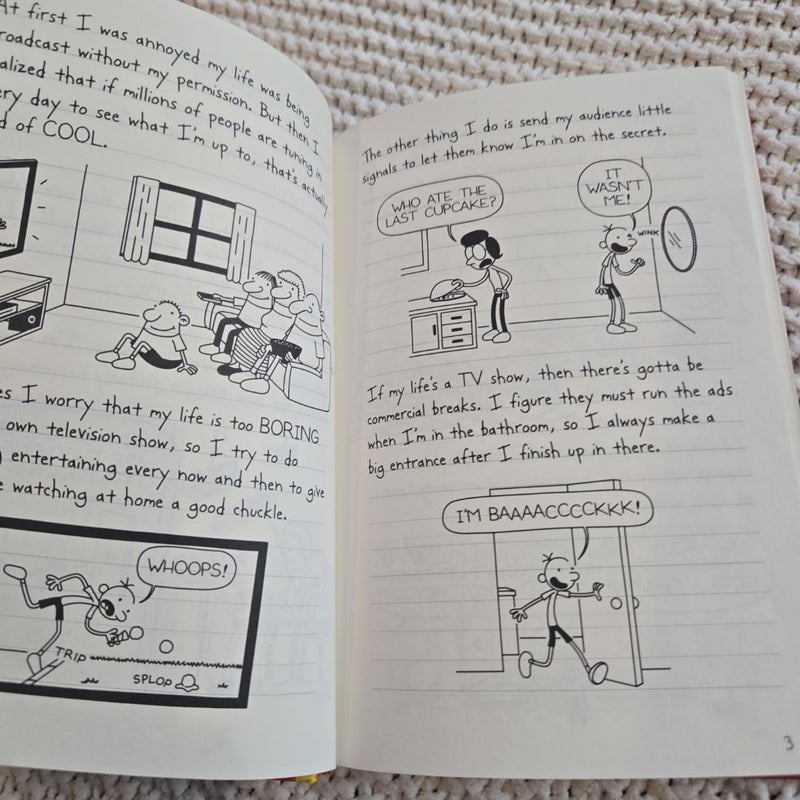 At first I was annoyed my life was being
roadcast without my permission. But then I
alized that if millions of people are tuning in
ery day to see what I'm up to, that's actually
d of COOL.
es I worry that my life is too BORING
own television show, so I try to do
g entertaining every now and then to give
e watching at home a good chuckle.
WHOOPS!
TRIP
SPLOP
The other thing I do is send my audience little
signals to let them know I'm in on the secret.
WHO ATE THE
LAST CUPCAKE?
IT
WASN'T
ME!
WINK
If my life's a TV show, then there's gotta be
commercial breaks. I figure they must run the ads
when I'm in the bathroom, so I always make a
big entrance after I finish up in there.
I'M BAAAACCCCKKK!
3